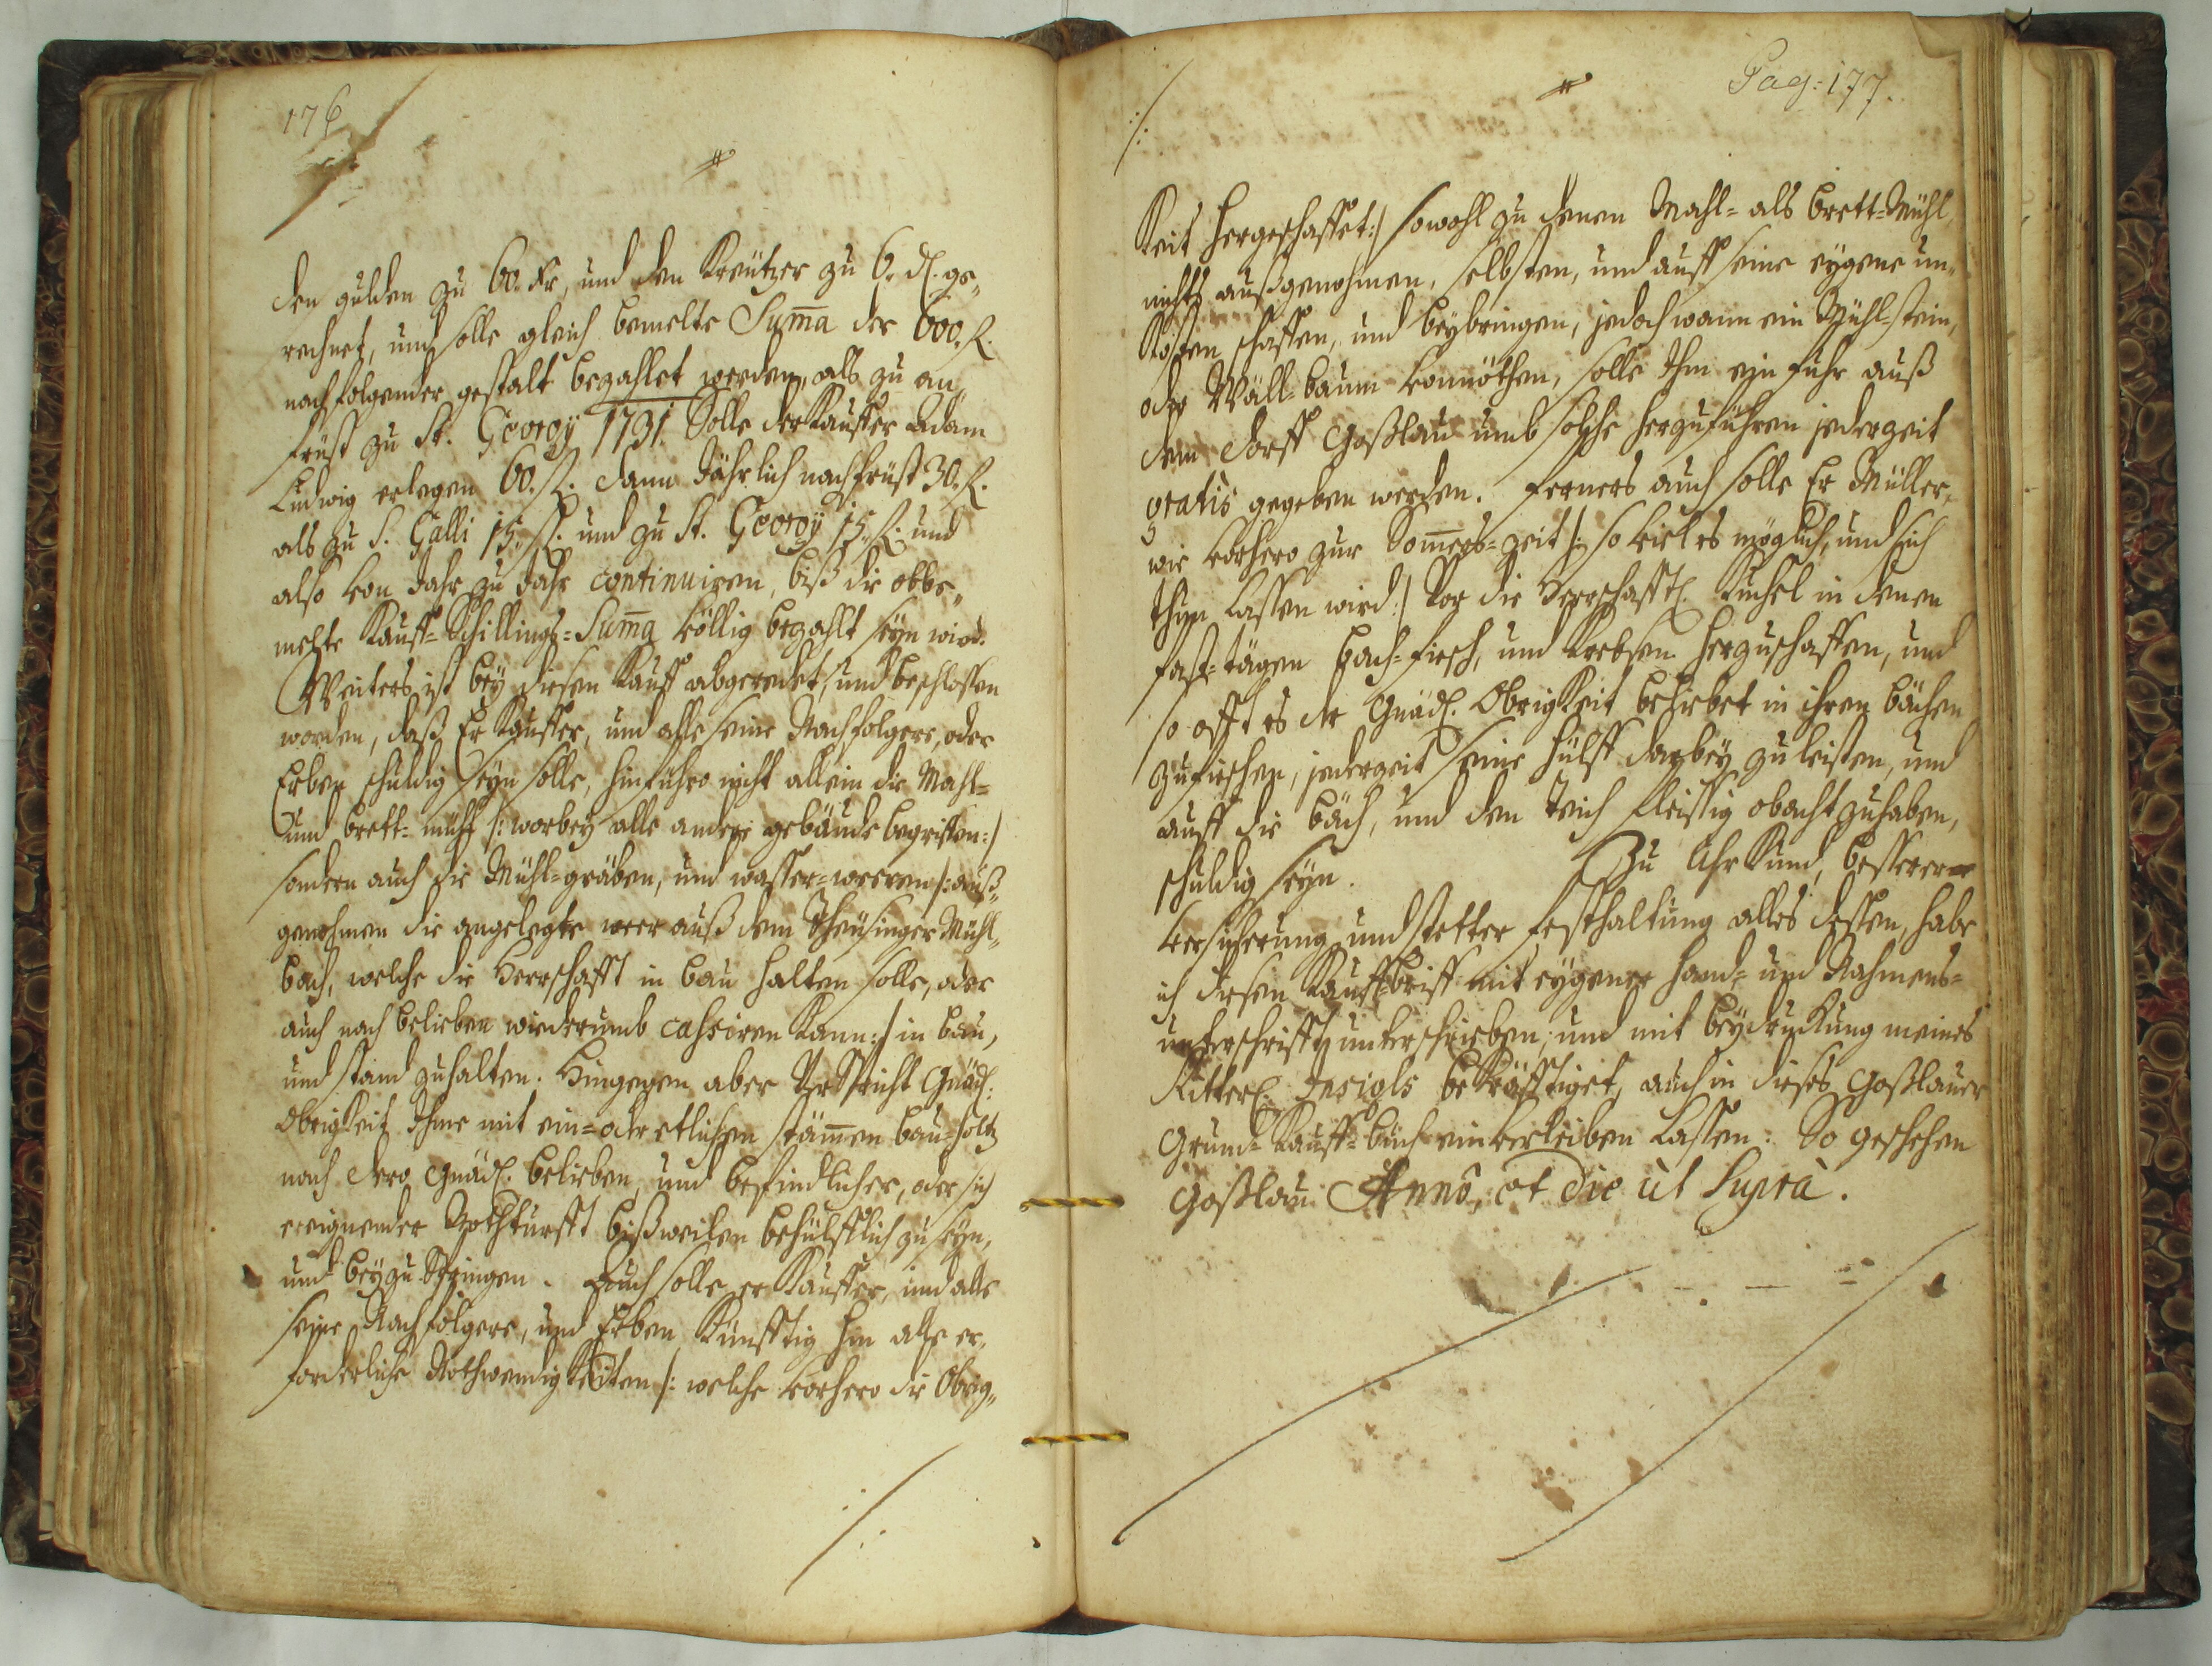 176
den gulden zu 60. Kr, und den Kreützer zu 6. d. ge„
rechnet, und solle gleich bemelte Suma der 600. fl.
nachfolgender gestalt bezahlet werden, als zu an„
früst zu St. Georgÿ 1731. Solle der Kauffer Adam
Ludwig erlegen 60. fl. dann Jährlich nachfrüst 30. fl.
als zu S. Galli 15. fl. und zu St. Georgÿ 15. fl. und
also von Jahr zu Jahr continuiren, biß die obbe„
melte Kauff=Schillings=Suma völlig bezahlt seÿn wird.
Weiters ist beÿ diesen Kauff abgeredet, und beschlossen
worden, daß Er Kauffer, und alle seine Nachfolgere, oder
Erben schuldig seÿn solle, hinführo nicht allein die Mahl=
und brett=mühl /: worbeÿ alle andere gebäude begriffen :/
sondern auch die Mühl=gräben, und wasser=weeren /: auß„
genohmen die angelegte weer auß dem Theüsinger Mühl„
bach, welche die Herrschafft in bau halten solle, oder
auch nach belieben wiederumb cassiren kann :/ in bau,
und stand zuhalten. Hingegen aber verspricht Gnäd:
Obrigkeit Ihme mit ein= oder etlichen stämen bau=holtz
nach dero Gnäd. belieben, und befindlicher, oder sich
ereignender Nothturfft bißweilen behülfflich zu seÿn,
und beÿzuspringen. Auch solle er Kauffer, und alle
seine Nachfolgere, und Erben künfftig hin alle er„
forderliche Nothwendigkeiten /: welche vorhero die Obrig„
Pag: 177.
keit hergeschaffet :/ sowohl zu denen Mahl= als brett=Mühl
nichts außgenohmen, selbsten, und auff seine eÿgene un„
kosten schaffen, und beÿbringen, jedoch wann ein Mühl=stein,
oder Wäll=baum vonnöthen, solle Ihm ein fuhr auß
dem Dorff Goßlau umb solche herzuführen jederzeit
gratis gegeben werden. Ferners auch solle Er Müller,
wie vorhero zur Somers=zeit /: so viel es möglich, und sich
thun lassen wird :/ vor die Herrschafftl. Kuchel in denen
fast=tägen bach=fisch, und Krebsen herzuschaffen, und
so offt es der Gnäd. Obrigkeit beliebet in ihren bächen
zufischen, jederzeit seine hülff darbeÿ zu leisten, und
auff die bäch, und den Teich fleissig obacht zuhaben,
schuldig seÿn. Zu Uhrkund, besserer
versicherung und stetter festhaltung alles dessen, habe
ich diesen Kauffbrieff mit eÿgener hand= und Nahmens=
unterschrifft unterschrieben, und mit beÿdruckung meines
Ritterl. Insigls bekräfftiget, auch in dieses Goßlauer
Grund=Kauff=buch einverleiben lassen. So geschehen
Goßlau Anno, et Die ut Supra.